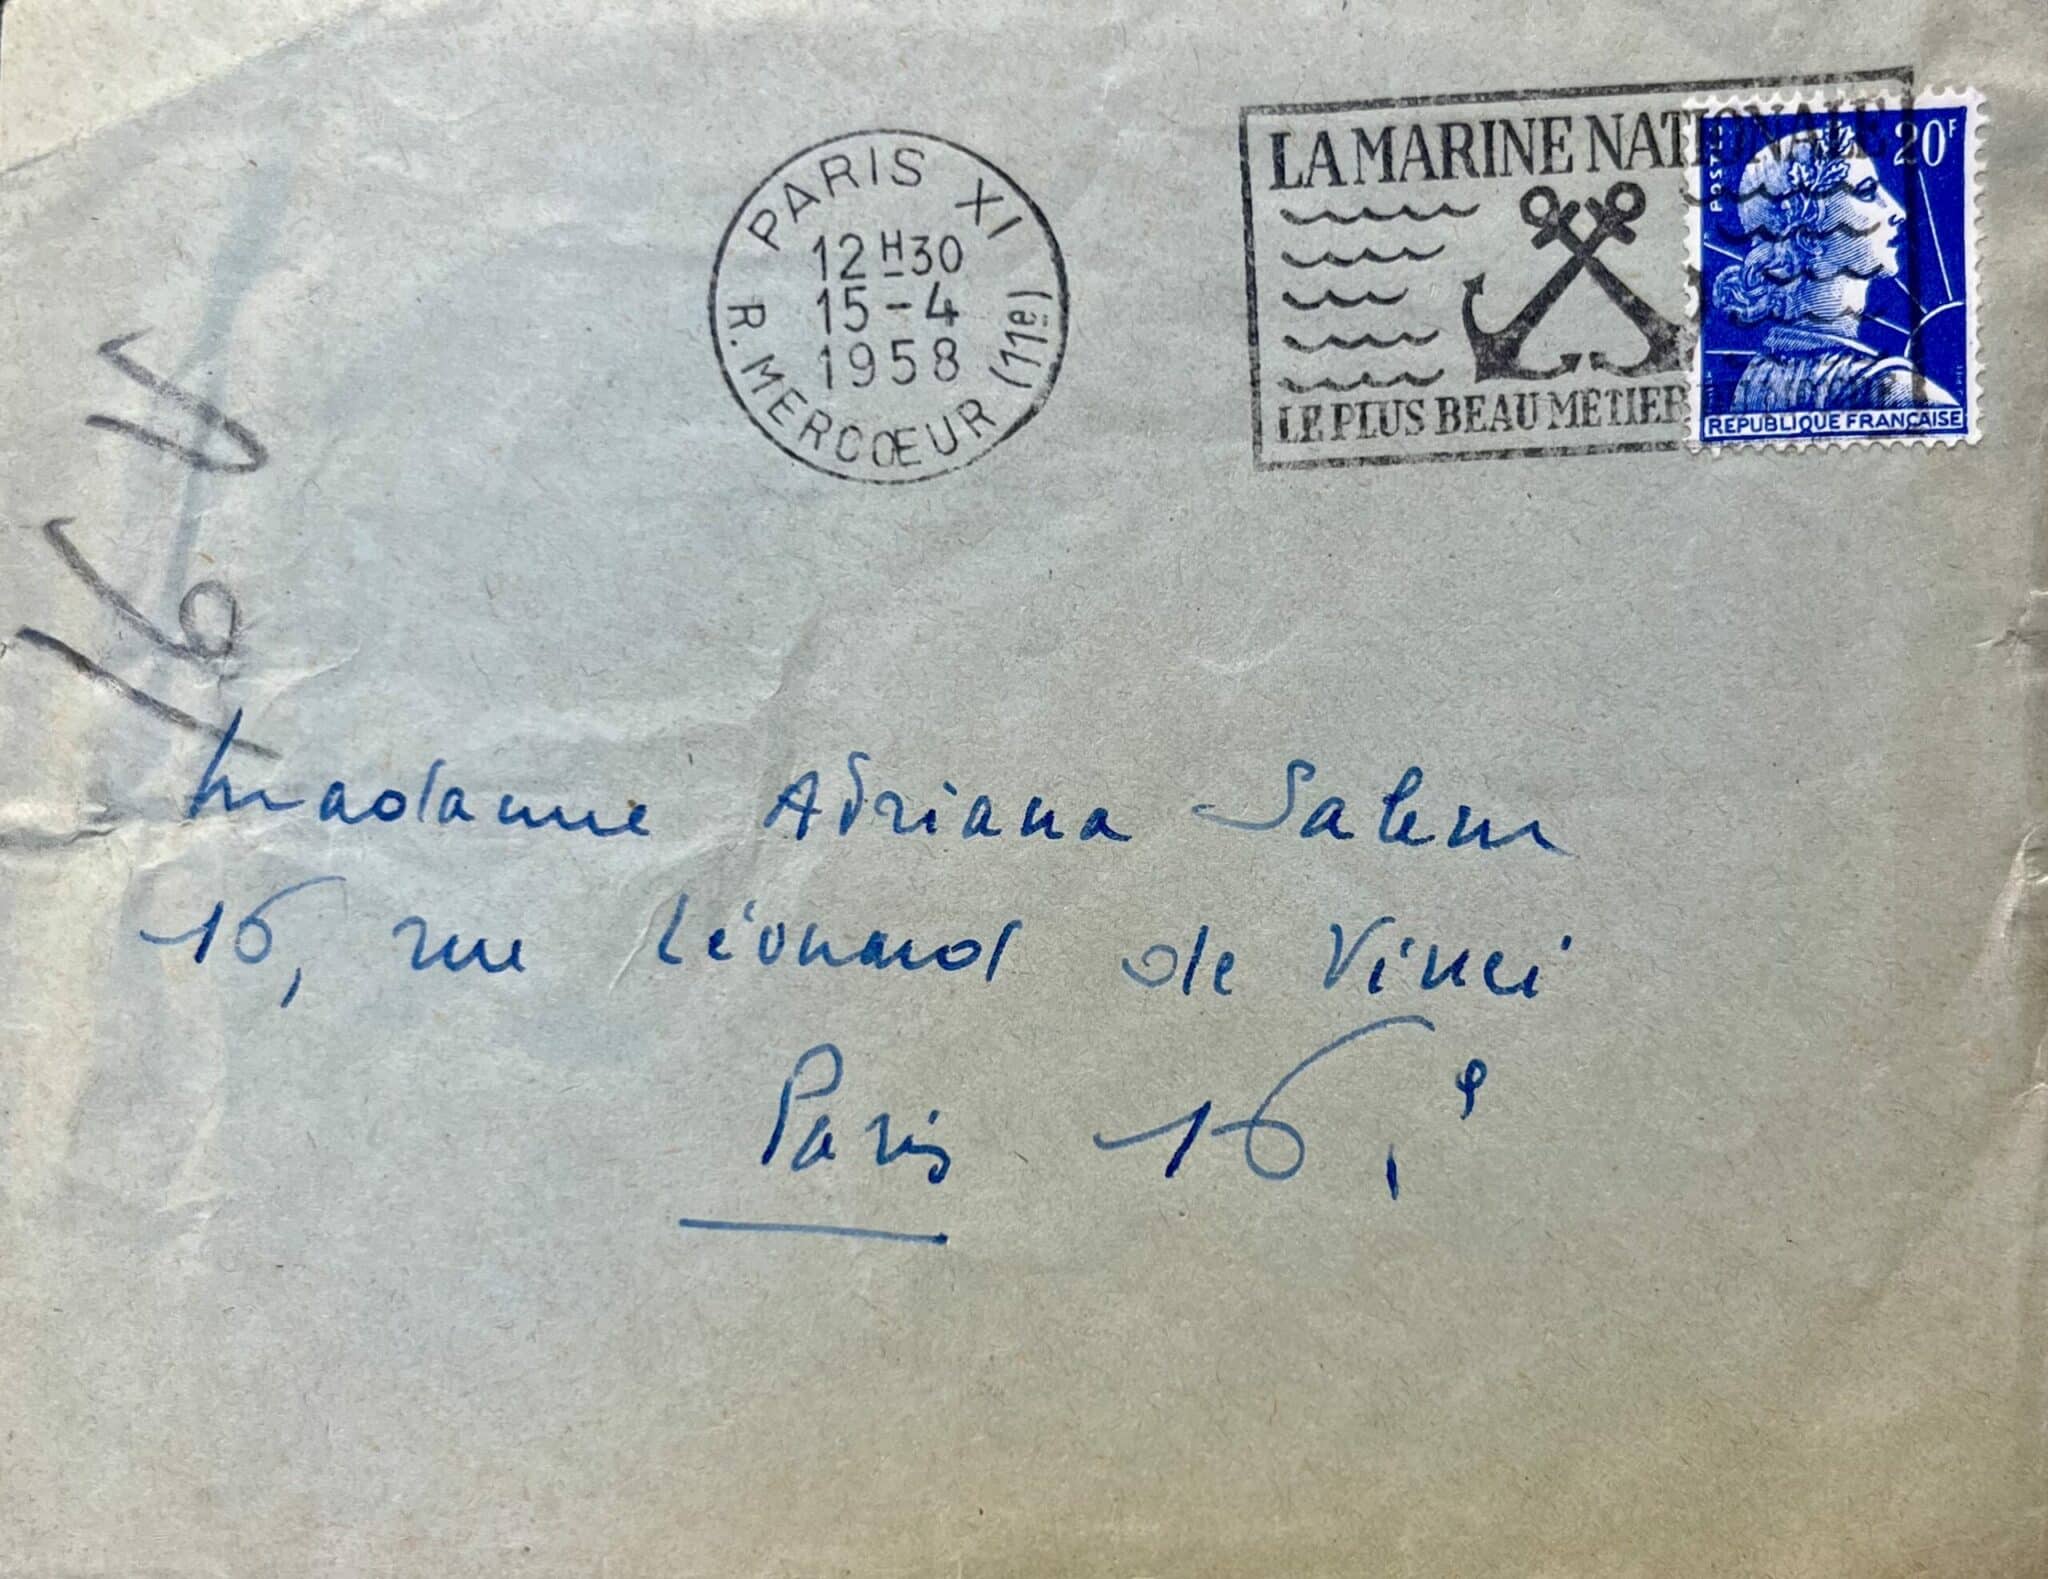 PARIS XI
12H30
15-4
1958
R. MERCOEUR (11e)
LA MARINE NATIONALE
LE PLUS BEAU METIER
POSTES
20F
REPUBLIQUE FRANÇAISE
16
Madame Adriana Salem
16, rue Léonard de Vinci
Paris 16, e